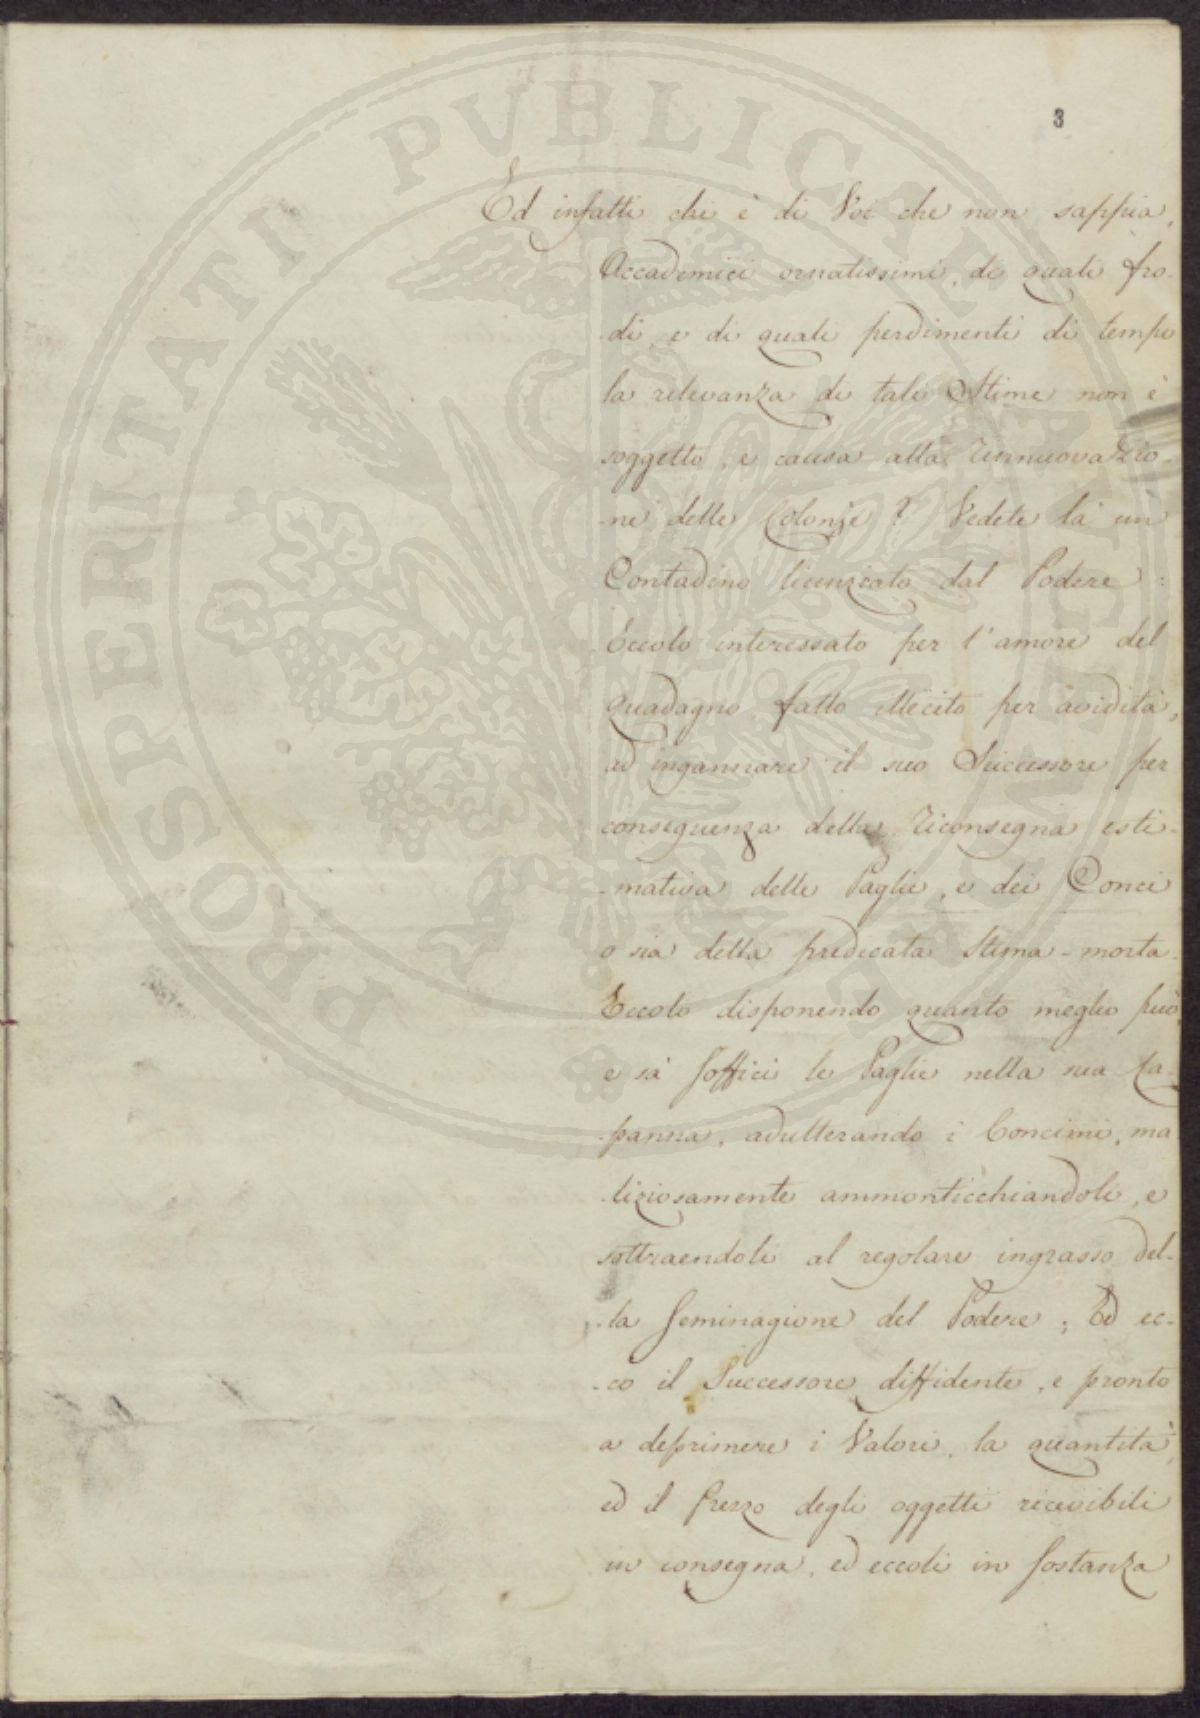 PROSPERITATI PVBLICAE AVGENDAE
3
Ed infatti chi è di Voi che non sappia,
Accademici ornatissimi, di quali fro-
-di, e di quali perdimenti di tempo
la rilevanza di tali Stime non è
soggetto, e causa alla rinnuovazio-
-ne delle Colonie? Vedete là un
Contadino licenziato dal Podere:
Eccolo interessato per l'amore del
guadagno fatto illecito per avidità,
ad ingannare il suo Successore per
conseguenza della riconsegna esti-
-mativa delle Paglie, e dei Conci
o sia della predicata Stima-morta.
Eccolo disponendo quanto meglio può,
e sà soffici le Paglie nella sua Ca-
-panna, adulterando i Concimi, ma
-liziosamente ammonticchiandoli, e
sottraendoli al regolare ingrasso del-
-la seminagione del Podere; Ed ec-
-co il Successore diffidente, e pronto
a deprimere i Valori, la quantità,
ed il prezzo degli oggetti ricevibili
in consegna, ed eccoli in sostanza